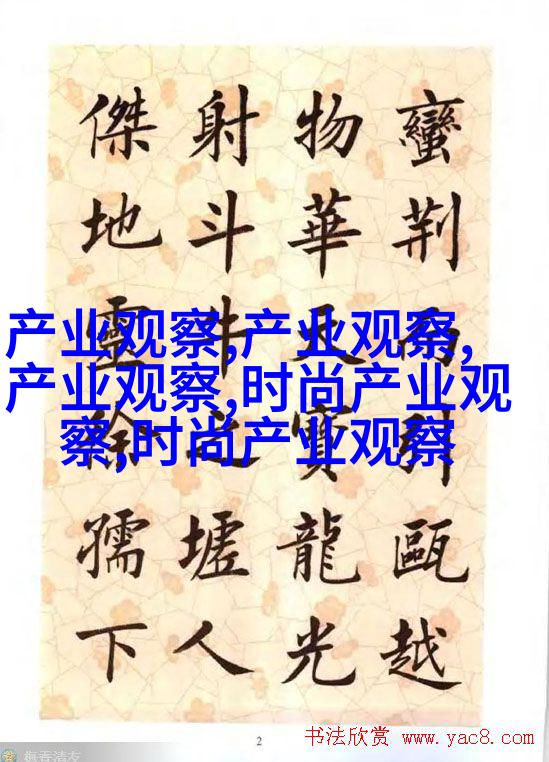 蠻荆而引甌越
物華天寶龍光
射斗牛之墟人
傑地靈徐孺下
产业观察,产业观察,
产业观察,时尚产业观
察,时尚产业观察
2
书法欣赏 www.yac8.com